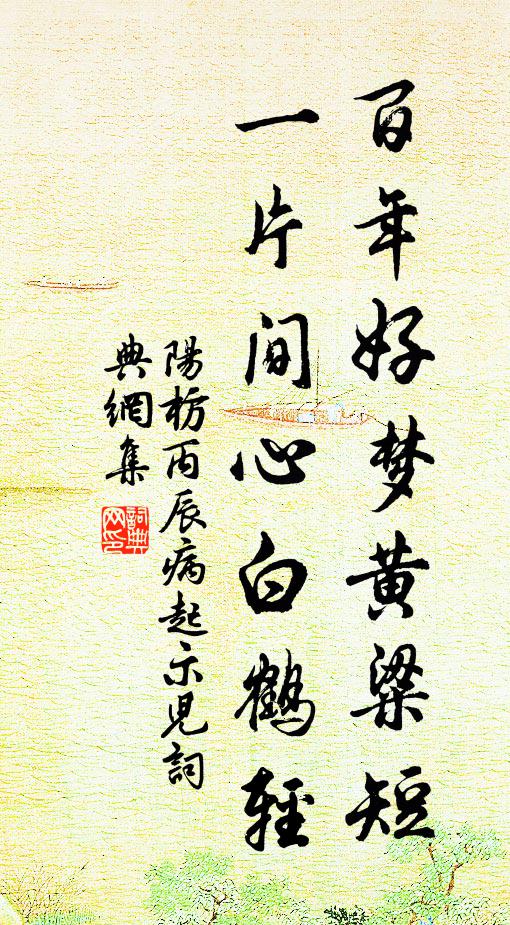 百年好梦黄粱短
一片间心白鹤轻
陽枋丙辰病起示児詞
典網集
詞典
网印